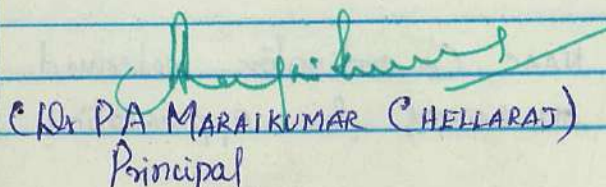 (Dr PA MARAIKUMAR CHELLARAJ)
Principal